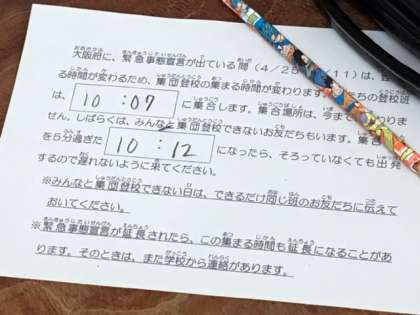 大阪府に、緊急事態宣言が出ている間(4/25 /11)は、
る時間が変わるため、集団登校の集まる時間が変わります。 ちの登校班
は、 10:07 に集合します。集合場所は、今まで わりま
せん。しばらくは、みんなと集団登校できないお友だちもいます。集合
を5分過ぎた 10:12 になったら、そろっていなくても出発
するので遅れないように来てください。
※みんなと集団登校できない日は、できるだけ同じ班のお友だちに伝えて
おいてください。
※緊急事態宣言が延長されたら、この集まる時間も延長になることがあ
ります。そのときは、また学校から連絡があります。